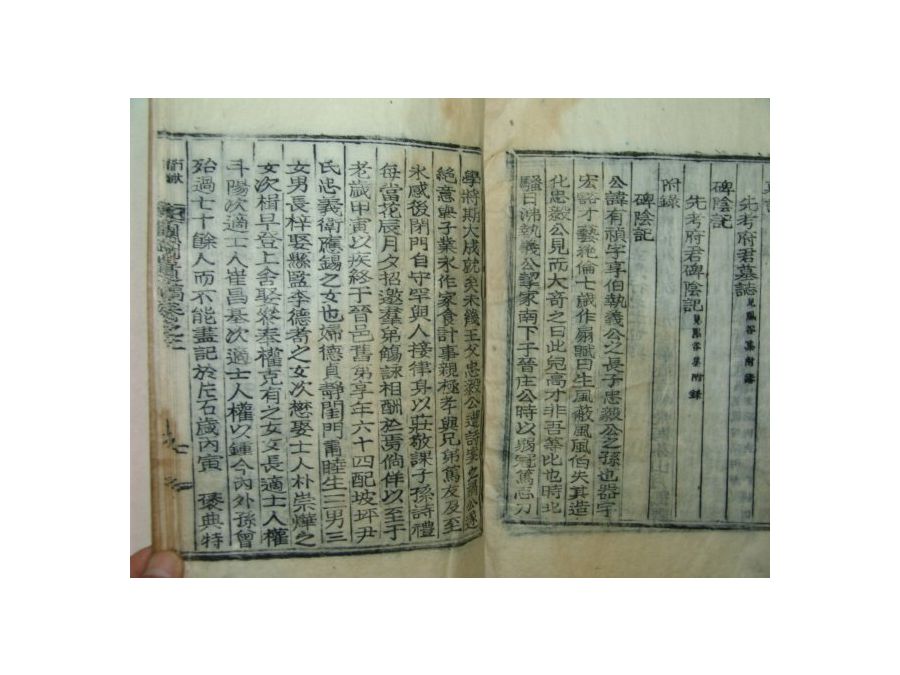 先考府君墓誌 見鳳谷集附錄
碑陰記
先考府君碑陰記 見鳳谷集附錄
附錄
碑陰記
公諱有禎字享伯執義公之長子忠毅公之孫也器宇
宏豁才藝絶倫七歲作扇賦曰生風蔽風風伯失其造
化忠毅公見而大奇之曰此兒高才非吾等比也時北
騷日沸執義公挈家南下于晉庄公時以弱冠篤志力
學將期大成就矣未幾王父忠毅公遭詩案之禍公遂
絶意擧子業永作家食計事親極孝與兄弟篤友及至
永感後閉門自守罕與人接律身以莊敬課子孫詩禮
每當花辰月夕招邀羣弟觴詠相酬於焉倘佯以至于
老歲甲寅以疾終于晉邑舊第享年六十四配坡坪尹
氏忠義衛應錫之女也婦德貞靜閨門肅睦生三男三
女男長梓娶縣監李德耉之女次楙娶士人朴崇燁之
女次楫早登上舍娶參奉權克有之女女長適士人權
斗陽次適士人崔昌基次適士人權以鍾今內外孫曾
殆過七十餘人而不能盡記於片石歲丙寅 褒典特
附錄